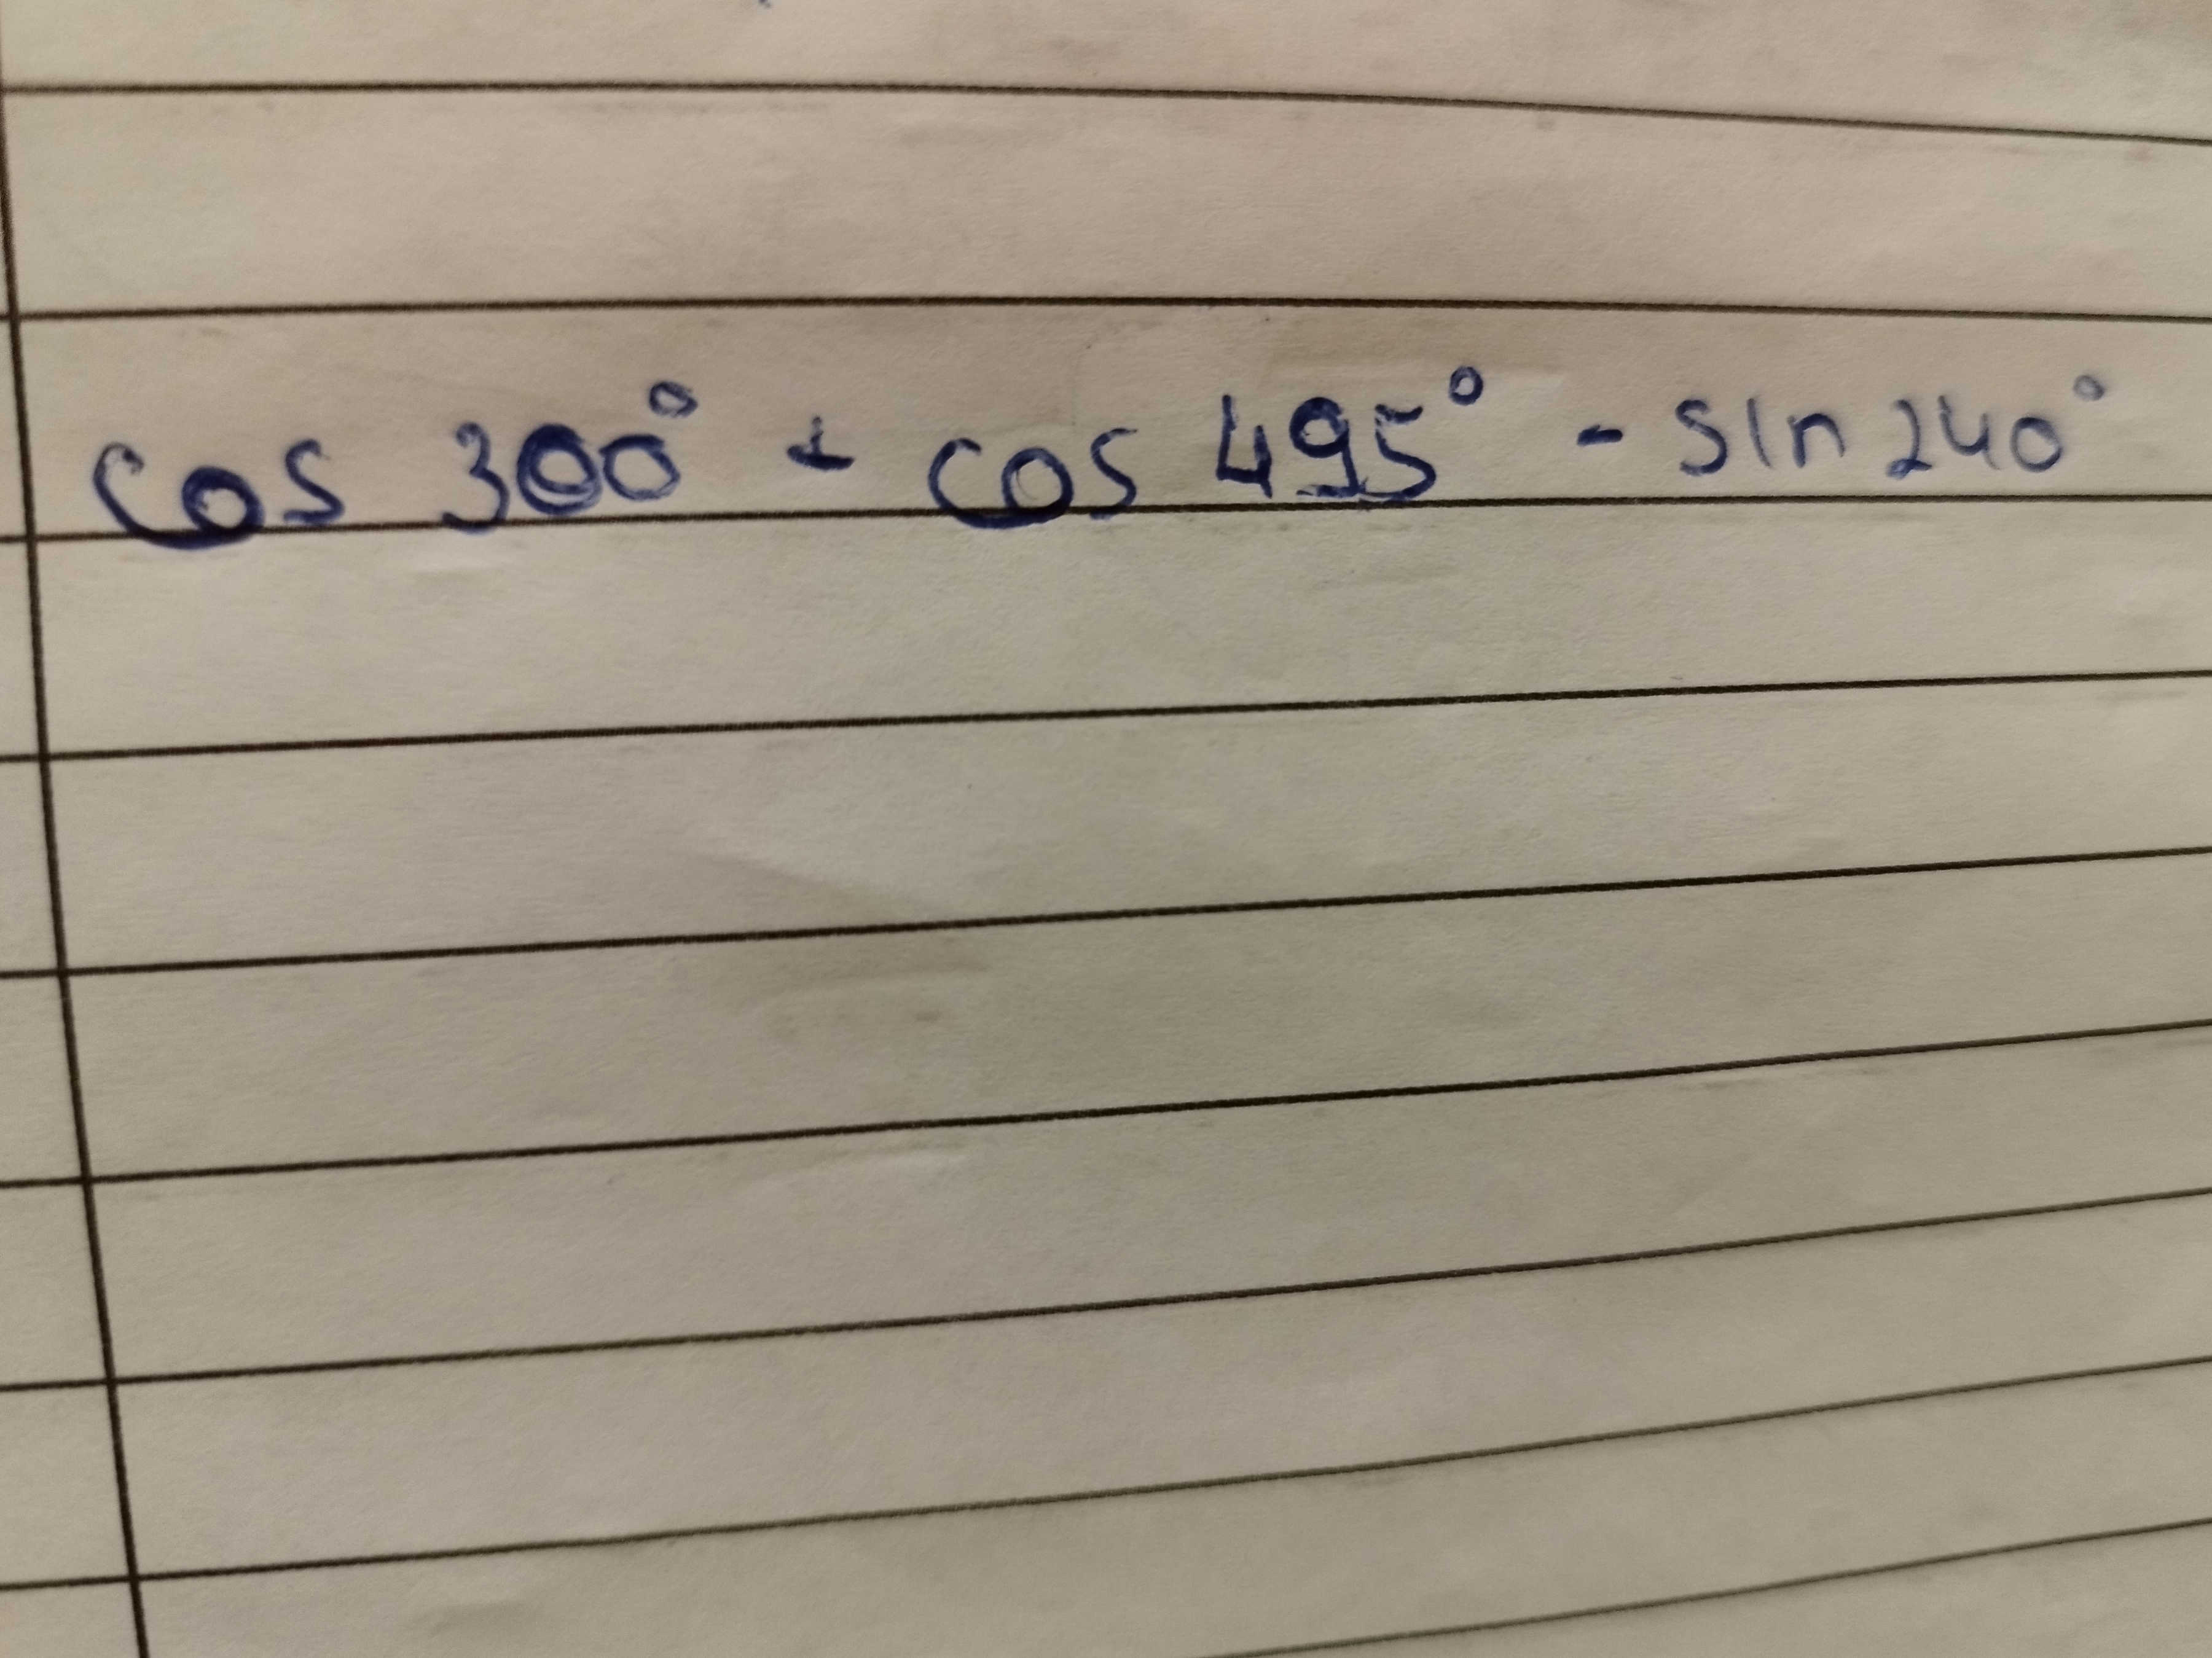 cos 300° + cos 495° - sin 240°